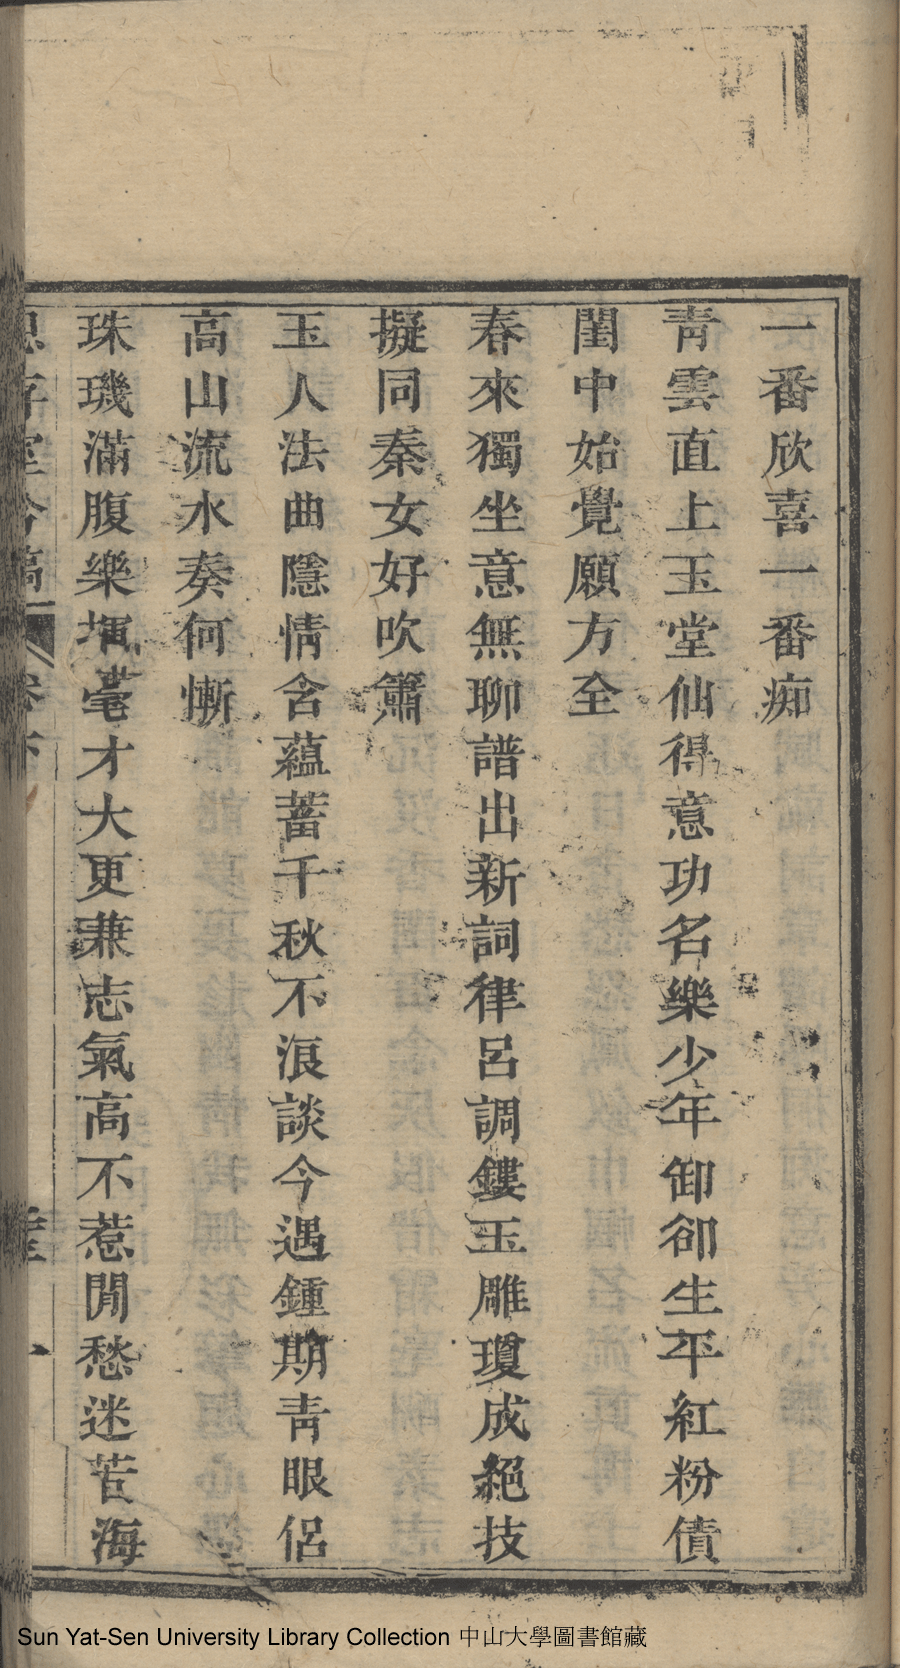 一番欣喜一番痴
青雲直上玉堂仙得意功名樂少年卸卻生平紅粉債
閨中始覺願方全
春來獨坐意無聊譜出新詞律呂調鏤玉雕瓊成絕技
擬同秦女好吹簫
玉人法曲隱情含蘊蓄千秋不浪談今遇鍾期青眼侶
高山流水奏何慚
珠璣滿腹樂揮毫才大更兼志氣高不惹閒愁迷苦海
Sun Yat-Sen University Library Collection 中山大學圖書館藏